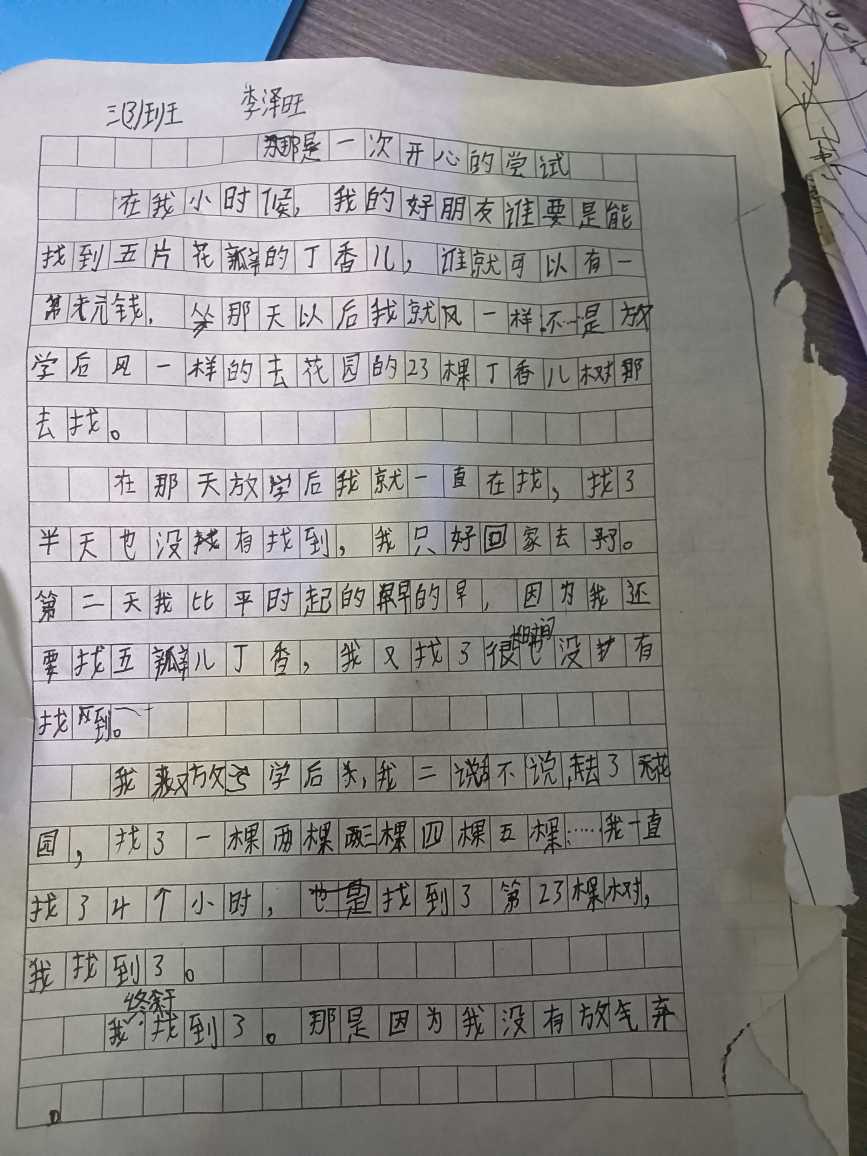 三(3)班 李泽旺
那是一次开心的尝试
在我小时候，我的好朋友谁要是能
找到五片花瓣的丁香儿，谁就可以有一
元钱，从那天以后我就风一样……是放
学后风一样的去花园的23棵丁香儿树那
去找。
在那天放学后我就一直在找，找了
半天也没有找到，我只好回家去了。
第二天我比平时起的早的早，因为我还
要找五瓣儿丁香，我又找了很长时间也没有
找到。
我放学后，我二话不说，去了花
园，找了一棵两棵三棵四棵五棵……我一直
找了4个小时，找到了第23棵树，
我找到了。
我终于找到了。那是因为我没有放气弃
。